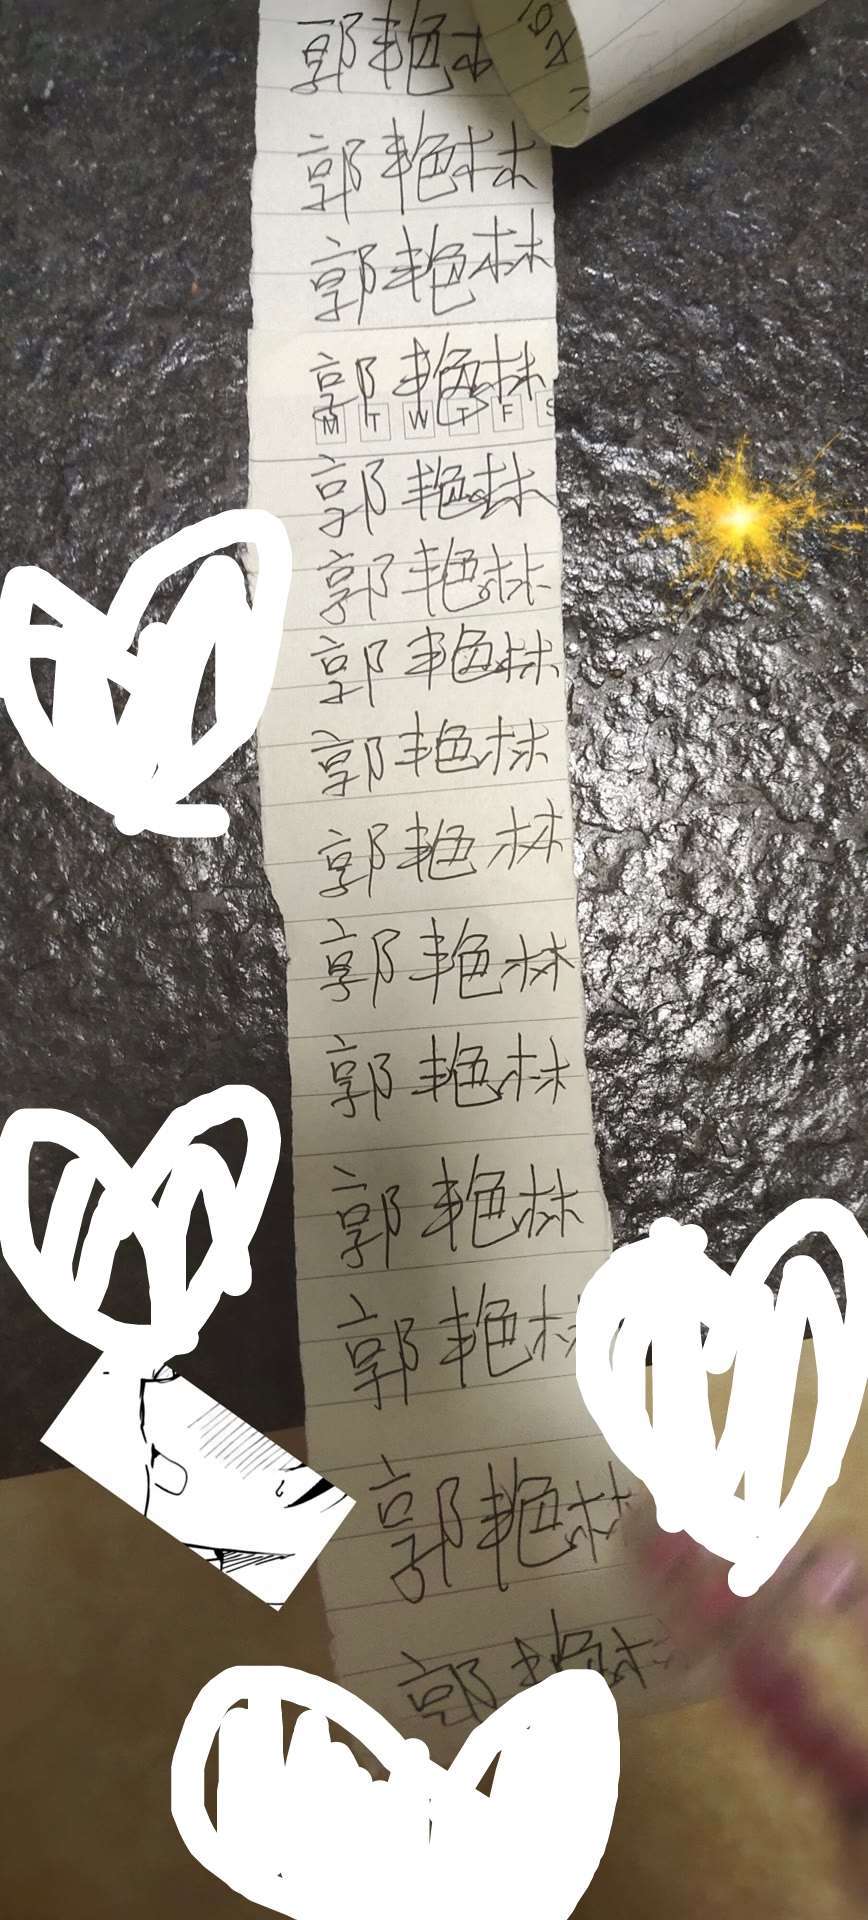 郭艳林
郭艳林
郭艳林
郭艳林
M T W T F S
郭艳林
郭艳林
郭艳林
郭艳林
郭艳林
郭艳林
郭艳林
郭艳林
郭艳林
郭艳林
郭艳林